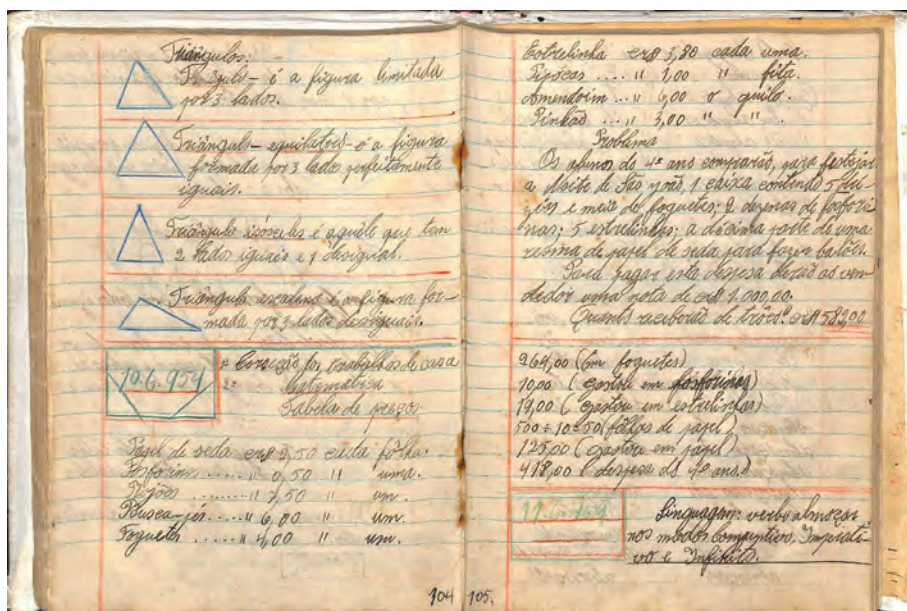 Triângulos:
é a figura limitada
por 3 lados.
Triângulo - equilátero - é a figura
formada por 3 lados perfeitamente
iguais.
Triângulo isósceles é aquêle que tem
2 lados iguais e 1 desigual.
Triângulo escaleno é a figura for-
mada por 3 lados desiguais.
10.6.954
1º Correção dos trabalhos de casa
2º Matematica
Tabela de preços
Papel de seda cr$ 2,50 cada fôlha.
Fosforinos ..... " 0,50 " uma.
" 7,50 " um.
Busca-pés .... " 6,00 " um.
Foguetes ..... " 4,00 " um.
104
Estrelinha cr$ 3,80 cada uma.
Pipócas .... " 1,00 " fita.
Amendoim ... " 6,00 o quilo.
Pinhão ... " 3,00 " " .
Problema
Os alunos do 4º ano comprarão, para festejar
a Noite de São João, 1 caixa contendo 5 dú-
zias e meia de foguetes; 2 dezenas de fosfori-
nas; 5 estrelinhas; a décima parte de uma
resma de papel de seda para fazer balões.
Para pagar esta despesa derão ao ven-
dedor uma nota de cr$ 1.000,00.
Quanto receberão de trôco? cr$ 582,00
264,00 (Em foguetes)
10,00 (gastou em fosforinas)
19,00 (gastou em estrelinhas)
500 ÷ 10 = 50 (fôlhas de papel)
125,00 (gastou em papel)
418,00 (despesa do 4º ano.)
11.6.954
Linguagem: verbo almoçar
nos modos Imperati-
vo e Infinito.
105.